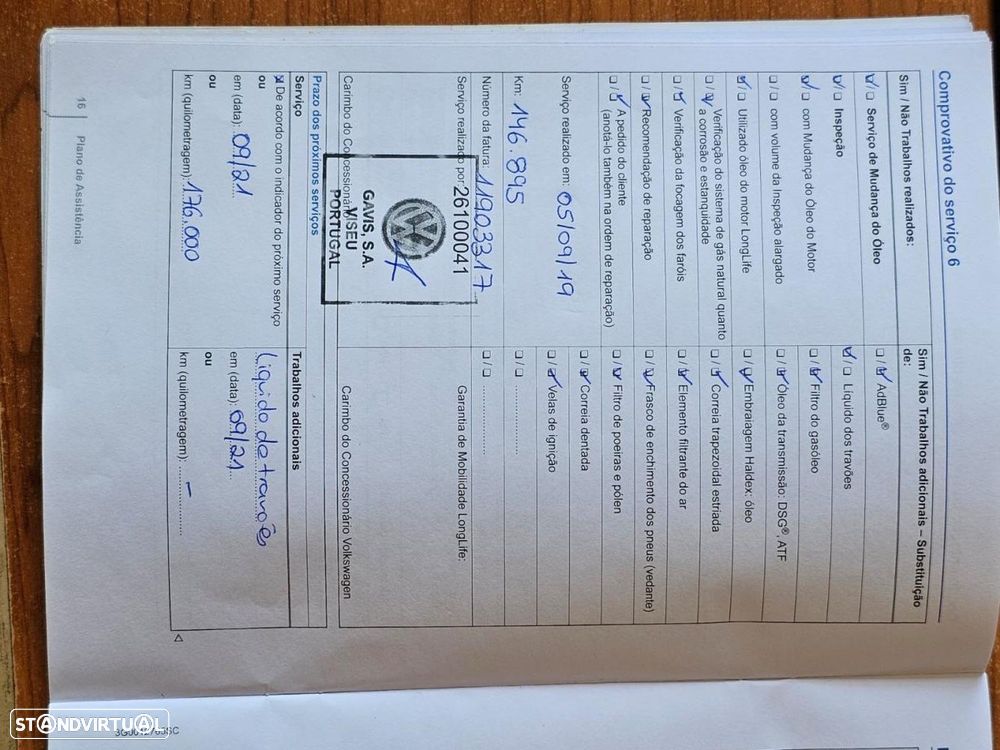 Comprovativo do serviço 6
Sim / Não Trabalhos realizados:
☑/☐ Serviço de Mudança do Óleo
☑/☐ Inspeção
☑/☐ com Mudança do Óleo do Motor
☐/☐ com volume da Inspeção alargado
☑/☐ Utilizado óleo do motor LongLife
☐/☑ Verificação do sistema de gás natural quanto
a corrosão e estanquidade
☐/☑ Verificação da focagem dos faróis
☐/☑ Recomendação de reparação
☐/☑ A pedido do cliente
(anotá-lo também na ordem de reparação)
Serviço realizado em: 05/09/19
Km: 146.895
Número da fatura: 11903317
Serviço realizado por: 26100041
Carimbo do Concessionário
GAVIS, S.A.
VISEU
PORTUGAL
Sim / Não Trabalhos adicionais – Substituição
de:
☐/☑ AdBlue®
☑/☐ Líquido dos travões
☐/☑ Filtro do gasóleo
☐/☑ Óleo da transmissão: DSG®, ATF
☐/☑ Embraiagem Haldex: óleo
☐/☑ Correia trapezoidal estriada
☐/☑ Elemento filtrante do ar
☐/☑ Frasco de enchimento dos pneus (vedante)
☐/☑ Filtro de poeiras e pólen
☐/☑ Correia dentada
☐/☑ Velas de ignição
☐/☐ ....................
☐/☐ ....................
Garantia de Mobilidade LongLife:
Carimbo do Concessionário Volkswagen
Prazo dos próximos serviços
Serviço
☒ De acordo com o indicador do próximo serviço
ou
em (data): 09/21
ou
km (quilometragem): 176.000
Trabalhos adicionais
Liquido de travões
em (data): 09/21
ou
km (quilometragem): –
16 Plano de Assistência
STANDVIRTUAL